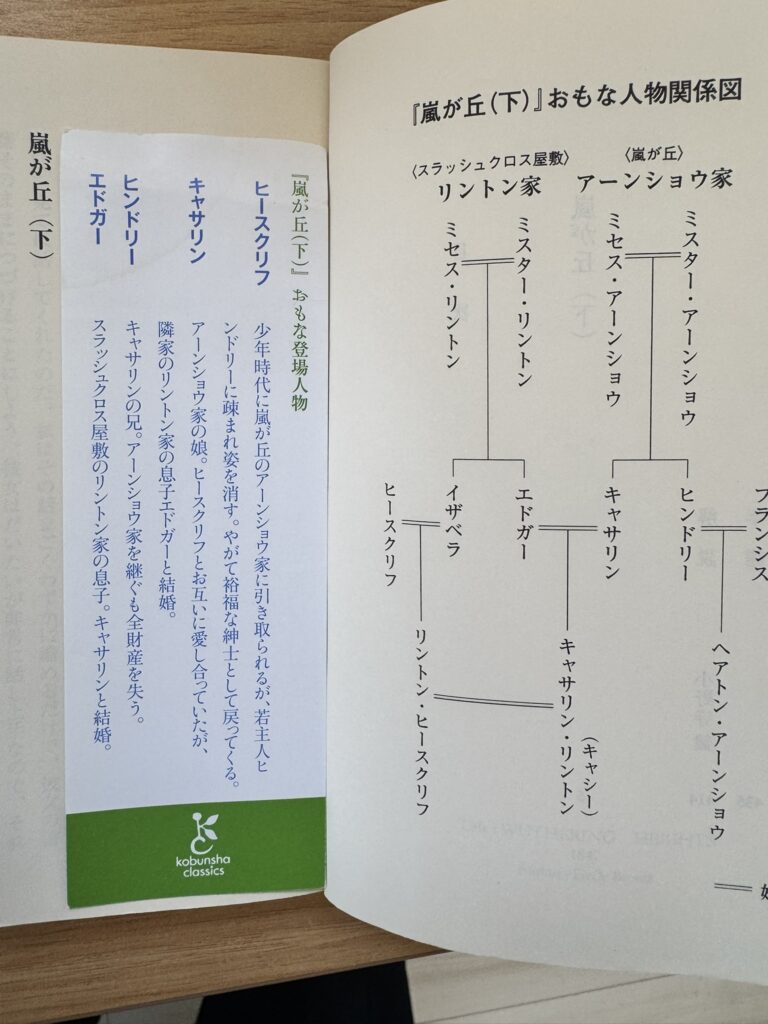 『嵐が丘(下)』おもな人物関係図
〈嵐が丘〉
アーンショウ家
〈スラッシュクロス屋敷〉
リントン家
ミスター・アーンショウ
ミセス・アーンショウ
ミスター・リントン
ミセス・リントン
フランシス
ヒンドリー
キャサリン
エドガー
イザベラ
ヒースクリフ
ヘアトン・アーンショウ
(キャシー)
キャサリン・リントン
リントン・ヒースクリフ
『嵐が丘(下)』 おもな登場人物
ヒースクリフ
少年時代に嵐が丘のアーンショウ家に引き取られるが、若主人ヒ
ンドリーに疎まれ姿を消す。やがて裕福な紳士として戻ってくる。
キャサリン
アーンショウ家の娘。ヒースクリフとお互いに愛し合っていたが、
隣家のリントン家の息子エドガーと結婚。
ヒンドリー
キャサリンの兄。アーンショウ家を継ぐも全財産を失う。
エドガー
スラッシュクロス屋敷のリントン家の息子。キャサリンと結婚。
kobunsha
classics
嵐が丘(下)